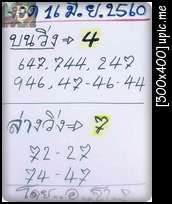 งวด 16 มิ.ย. 2560
บนวิ่ง => 4
647, 744, 247
946, 47-46-44
ล่างวิ่ง => 7
72-27
74-47
โดย..อ.
[300x400] upic.me